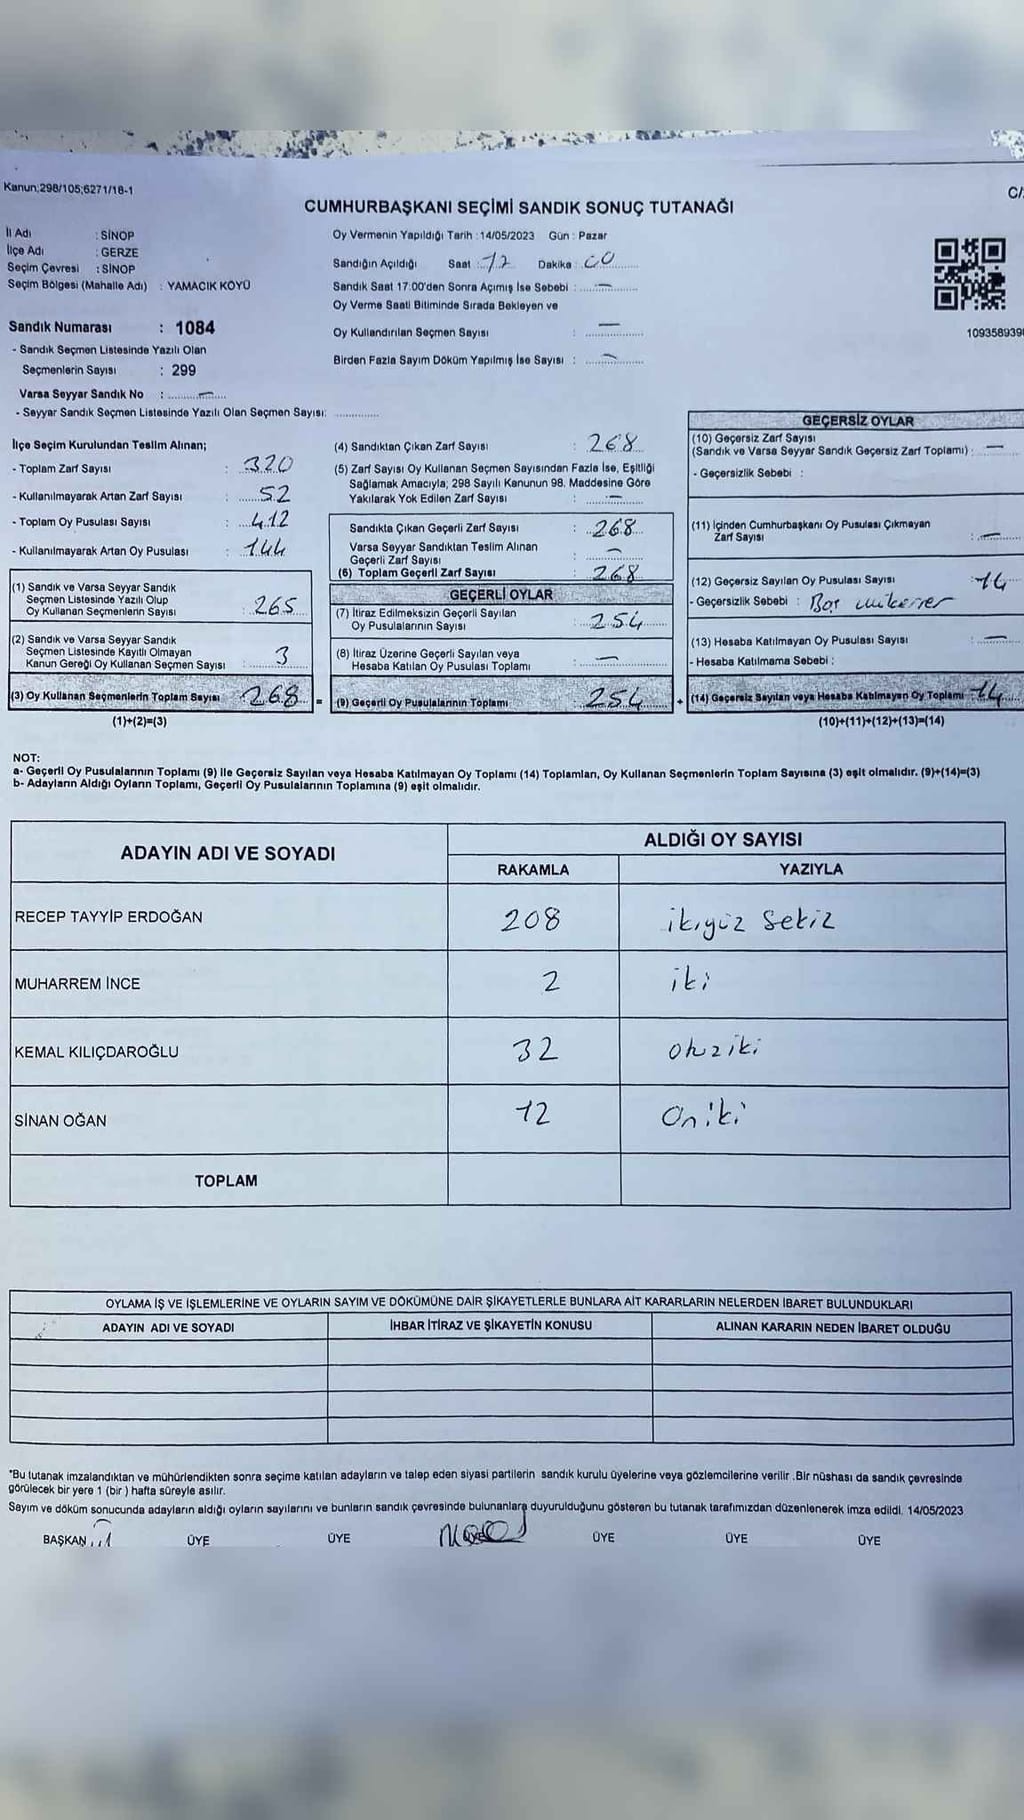 Kanun;298/105;6271/18-1
C/
CUMHURBAŞKANI SEÇİMİ SANDIK SONUÇ TUTANAĞI
İl Adı : SİNOP
İlçe Adı : GERZE
Seçim Çevresi : SİNOP
Seçim Bölgesi (Mahalle Adı) : YAMACIK KÖYÜ
Sandık Numarası : 1084
- Sandık Seçmen Listesinde Yazılı Olan
Seçmenlerin Sayısı : 299
Varsa Seyyar Sandık No : —
- Seyyar Sandık Seçmen Listesinde Yazılı Olan Seçmen Sayısı:
Oy Vermenin Yapıldığı Tarih : 14/05/2023 Gün : Pazar
Sandığın Açıldığı Saat : 17 Dakika : 00
Sandık Saat 17:00'den Sonra Açımış İse Sebebi : —
Oy Verme Saati Bitiminde Sırada Bekleyen ve
Oy Kullandırılan Seçmen Sayısı : —
Birden Fazla Sayım Döküm Yapılmış İse Sayısı : —
109358939
İlçe Seçim Kurulundan Teslim Alınan;
- Toplam Zarf Sayısı : 320
- Kullanılmayarak Artan Zarf Sayısı : 52
- Toplam Oy Pusulası Sayısı : 412
- Kullanılmayarak Artan Oy Pusulası : 144
(1) Sandık ve Varsa Seyyar Sandık
Seçmen Listesinde Yazılı Olup
Oy Kullanan Seçmenlerin Sayısı : 265
(2) Sandık ve Varsa Seyyar Sandık
Seçmen Listesinde Kayıtlı Olmayan
Kanun Gereği Oy Kullanan Seçmen Sayısı : 3
(3) Oy Kullanan Seçmenlerin Toplam Sayısı 268 =
(1)+(2)=(3)
(4) Sandıktan Çıkan Zarf Sayısı : 268
(5) Zarf Sayısı Oy Kullanan Seçmen Sayısından Fazla İse, Eşitliği
Sağlamak Amacıyla; 298 Sayılı Kanunun 98. Maddesine Göre
Yakılarak Yok Edilen Zarf Sayısı : —
Sandıkta Çıkan Geçerli Zarf Sayısı : 268
Varsa Seyyar Sandıktan Teslim Alınan
Geçerli Zarf Sayısı : —
(6) Toplam Geçerli Zarf Sayısı : 268
GEÇERLİ OYLAR
(7) İtiraz Edilmeksizin Geçerli Sayılan
Oy Pusulalarının Sayısı : 254
(8) İtiraz Üzerine Geçerli Sayılan veya
Hesaba Katılan Oy Pusulası Toplamı : —
(9) Geçerli Oy Pusulalarının Toplamı 254 +
GEÇERSİZ OYLAR
(10) Geçersiz Zarf Sayısı
(Sandık ve Varsa Seyyar Sandık Geçersiz Zarf Toplamı) : —
- Geçersizlik Sebebi :
(11) İçinden Cumhurbaşkanı Oy Pusulası Çıkmayan
Zarf Sayısı : —
(12) Geçersiz Sayılan Oy Pusulası Sayısı : 14
- Geçersizlik Sebebi : Boş mükerrer
(13) Hesaba Katılmayan Oy Pusulası Sayısı : —
- Hesaba Katılmama Sebebi :
(14) Geçersiz Sayılan veya Hesaba Katılmayan Oy Toplamı 14
(10)+(11)+(12)+(13)=(14)
NOT:
a- Geçerli Oy Pusulalarının Toplamı (9) ile Geçersiz Sayılan veya Hesaba Katılmayan Oy Toplamı (14) Toplamları, Oy Kullanan Seçmenlerin Toplam Sayısına (3) eşit olmalıdır. (9)+(14)=(3)
b- Adayların Aldığı Oyların Toplamı, Geçerli Oy Pusulalarının Toplamına (9) eşit olmalıdır.
ADAYIN ADI VE SOYADI
ALDIĞI OY SAYISI
RAKAMLA YAZIYLA
RECEP TAYYİP ERDOĞAN 208 ikiyüz sekiz
MUHARREM İNCE 2 iki
KEMAL KILIÇDAROĞLU 32 otuziki
SİNAN OĞAN 12 Oniki
TOPLAM
OYLAMA İŞ VE İŞLEMLERİNE VE OYLARIN SAYIM VE DÖKÜMÜNE DAİR ŞİKAYETLERLE BUNLARA AİT KARARLARIN NELERDEN İBARET BULUNDUKLARI
ADAYIN ADI VE SOYADI İHBAR İTİRAZ VE ŞİKAYETİN KONUSU ALINAN KARARIN NEDEN İBARET OLDUĞU
"Bu tutanak imzalandıktan ve mühürlendikten sonra seçime katılan adayların ve talep eden siyasi partilerin sandık kurulu üyelerine veya gözlemcilerine verilir .Bir nüshası da sandık çevresinde
görülecek bir yere 1 (bir ) hafta süreyle asılır.
Sayım ve döküm sonucunda adayların aldığı oyların sayılarını ve bunların sandık çevresinde bulunanlara duyurulduğunu gösteren bu tutanak tarafımızdan düzenlenerek imza edildi. 14/05/2023
BAŞKAN ÜYE ÜYE ÜYE ÜYE ÜYE ÜYE